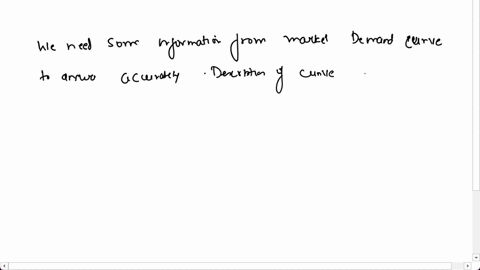 We need some information from market Demand curve
to answer accurately . Description of curve .